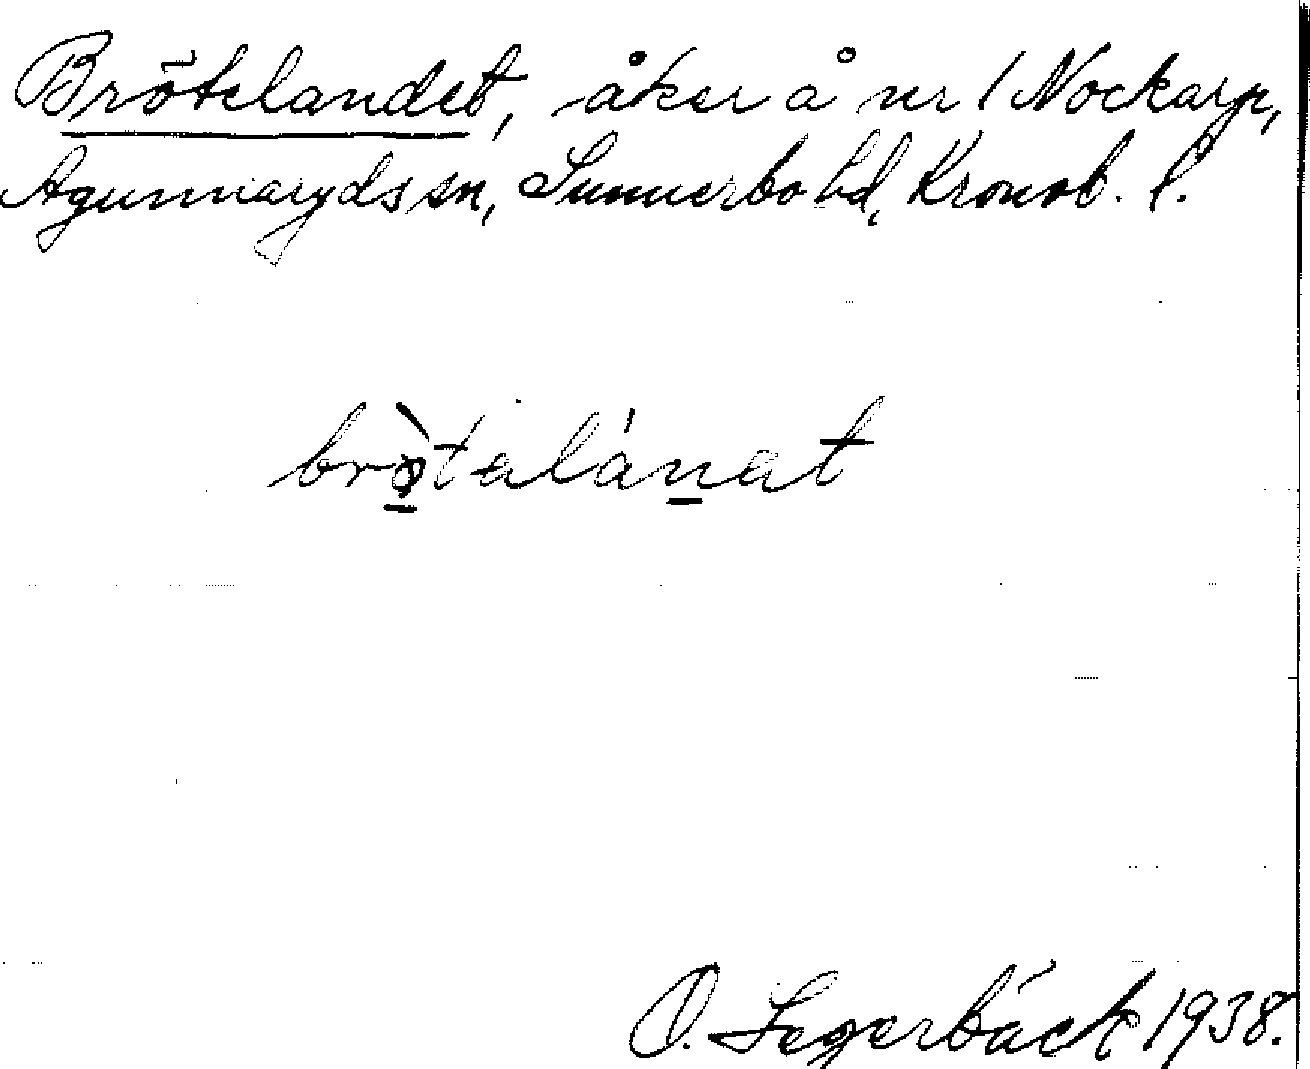 Brötelandet, åker å nr 1 Nockarp,
Agunnaryds sn, Sunnerbo hd, Kronob. l.
bròtalánat
O. Segerbäck 1938.